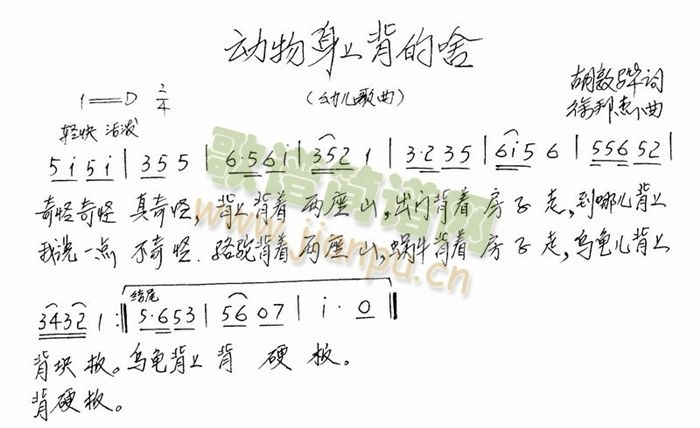 动物身上背的啥
(幼儿歌曲)
1=D 2/4
胡敦骅词
徐邦杰曲
轻快 活泼
5 i 5 i | 3 5 5 | 6·5 6 i | 3 5 2 1 | 3·2 3 5 | 6 i 5 6 | 5 5 6 5 2 |
奇怪奇怪 真奇怪, 背上背着 两座山, 出门背着 房子走, 到哪儿背上
我说一点 不奇怪. 骆驼背着 两座山, 蜗牛背着 房子走, 乌龟儿背上
结尾
3 4 3 2 1 :‖ 5·6 5 3 | 5 6 0 7 | i · 0 ‖
背块板。乌龟背上 背 硬 板。
背硬板。
歌谱简谱网
www.jianpu.cn